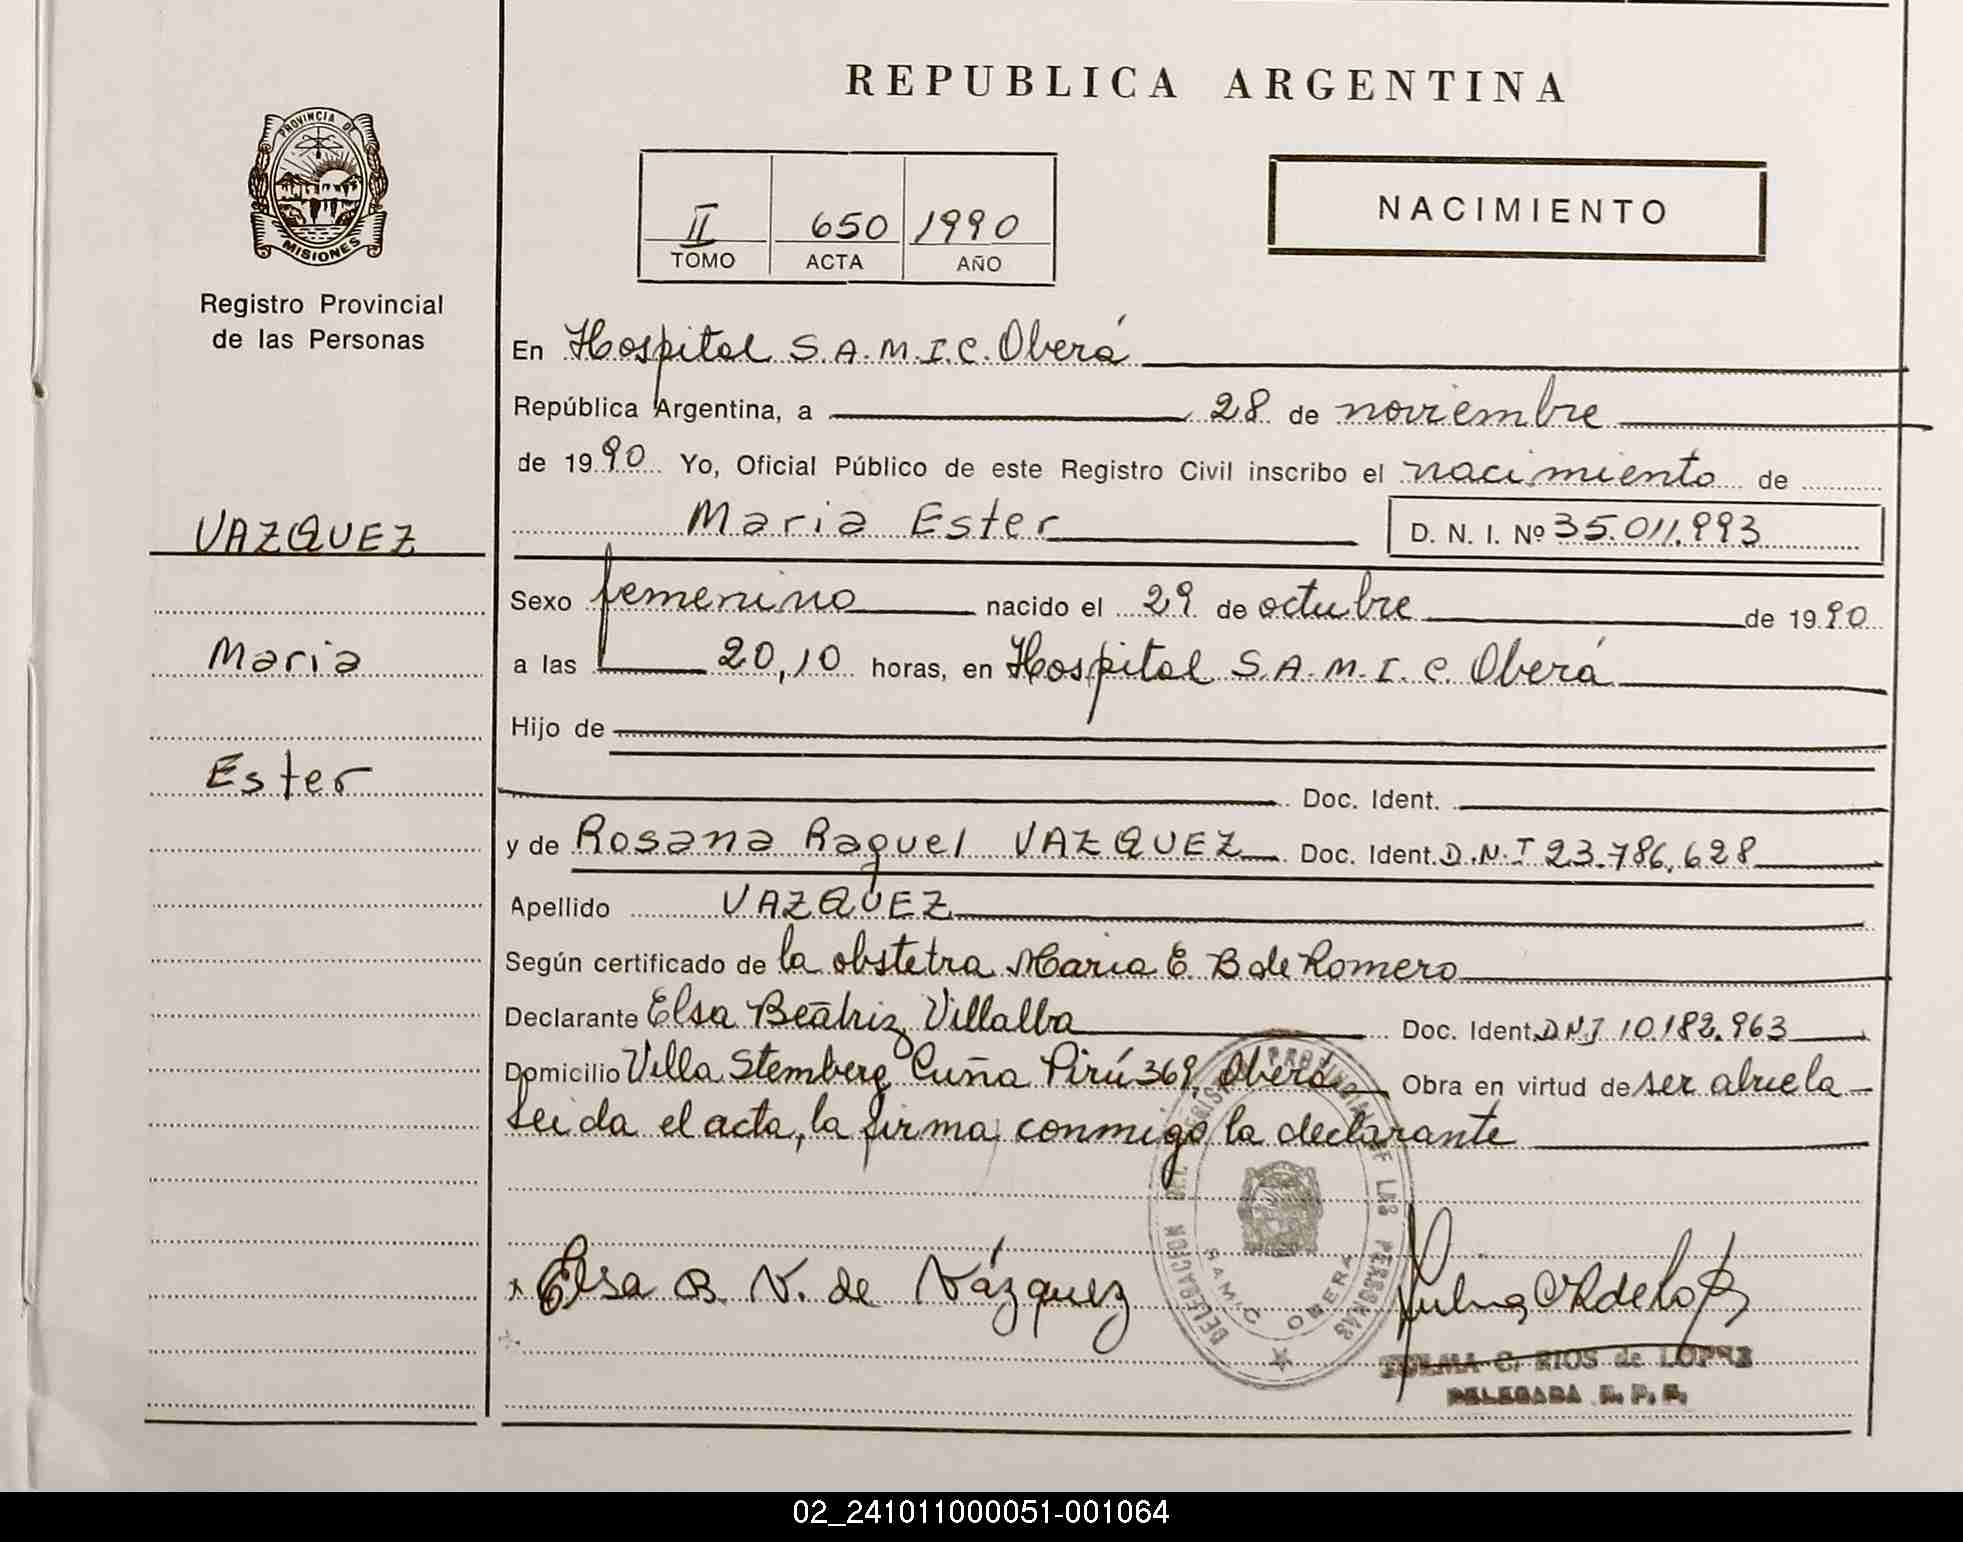 REPUBLICA ARGENTINA
PROVINCIA DE
MISIONES
Registro Provincial
de las Personas
II 650 1990
TOMO ACTA AÑO
NACIMIENTO
En Hospital S.A.M.I.C. Oberá
República Argentina, a 28 de noviembre
de 1990 Yo, Oficial Público de este Registro Civil inscribo el nacimiento de
Maria Ester
D. N. I. Nº 35.011.993
VAZQUEZ
Maria
Ester
Sexo femenino nacido el 29 de octubre de 1990
a las 20,10 horas, en Hospital S.A.M.I.C. Oberá
Hijo de
Doc. Ident.
y de Rosana Raquel VAZQUEZ Doc. Ident. D.N.I 23.786.628
Apellido VAZQUEZ
Según certificado de la obstetra Maria E. B de Romero
Declarante Elsa Beatriz Villalba Doc. Ident. DNI 10.182.963
Domicilio Villa Stemberg Cuña Pirú 369, Oberá Obra en virtud de ser abuela
Leida el acta, la firma conmigo la declarante
DELEGACION REGISTRO PROVINCIAL DE LAS PERSONAS
SAMIC OBERA
Elsa B. V. de Vázquez
C. RIOS de LOPEZ
DELEGADA R. P. P.
02_241011000051-001064